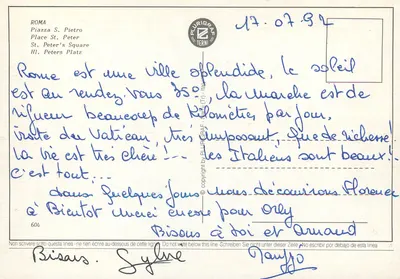 ROMA
Piazza S. Pietro
Place St. Peter
St. Peter's Square
Hl. Peters Platz
PLURIGRAF
TERNI
17.07.94
Rome est une ville splendide, le soleil
est au rendez-vous 350, la marche est de
rigueur beaucoup de kilomètres par jour,
visite du Vatican, très imposant, que de richesse!
La vie est très chère!... les Italiens sont beaux!
C'est tout...
dans quelques jours nous découvrirons Florence
à Bientot merci encore pour Orly
606
Bisous à toi et Arnaud
Non scrivere sotto questa linea - ne rien écrire au-dessous de cette ligne - Do not write below this line - Schreiben Sie nicht unter dieser Zeile - No escribir por debajo de esta linea
Bisous. Sylvie